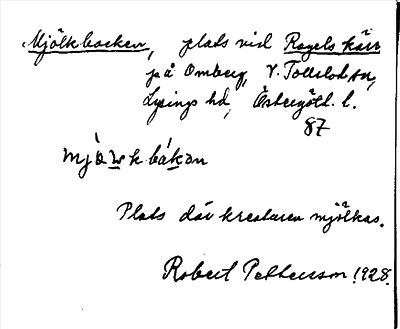 Mjölkbacken, plats vid Ragels kärr
på Omberg, V. Tollstad sn,
Lysings hd, Östergötl. l.
87
Plats där kreaturen mjölkas.
Robert Pettersson 1928.